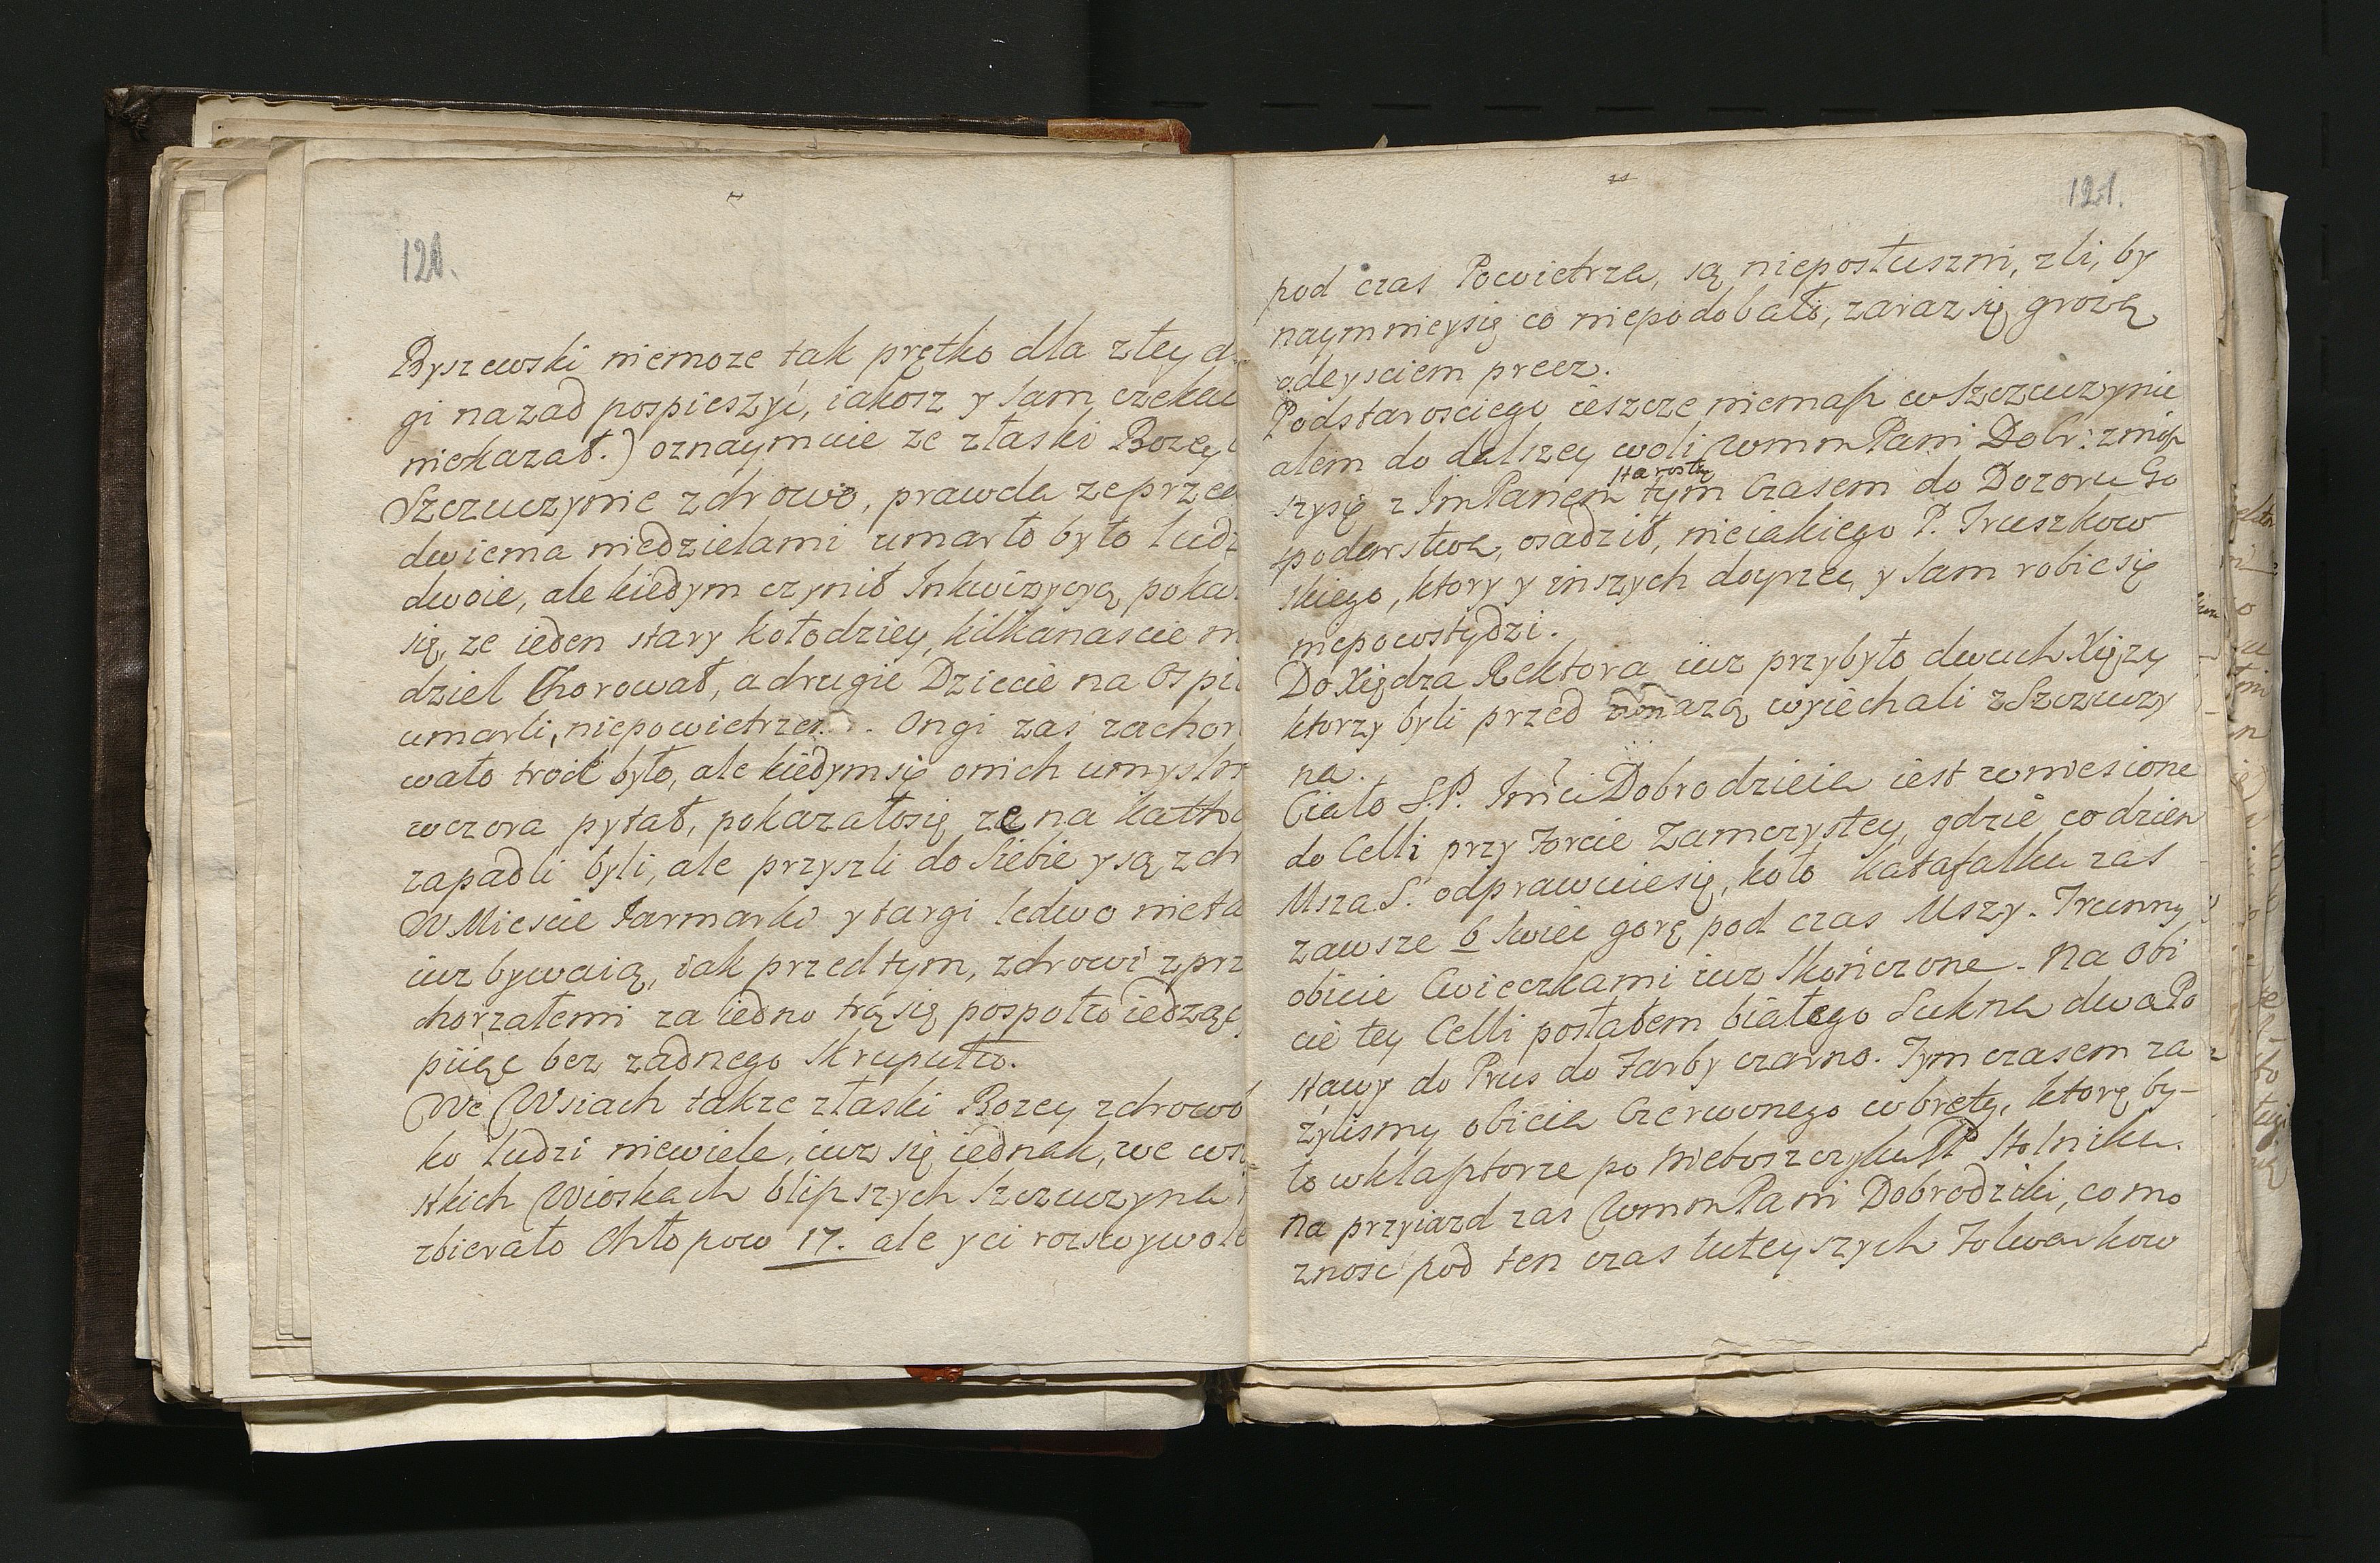 120.
Byszewski niemoze tak prętko dla złey d
gi nazad pospieszyć, iakosz y sam czekac
niekazał.) oznaymuie ze złaski Bozey
Szczuczynie zdrowo, prawda ze przed
dwiema niedzielami umarło było ludz
dwoie, ale kiedym czynił Inkwizycyą, poka
się, ze ieden stary kołodziey, kilkanascie n
dziel Chorował, a drugie Dziecie na Ospi
umarli, niepowietrzem. Ongi zas zachor
wało troie było, ale kiedym się o nich umysln
wczora pytał, pokazało się ze na
zapadli byli, ale przyszli do siebie y są zdr
W Miescie Jarmarki y targi ledwo nieta
iuz bywaią, iak przedtym, zdrowi z prz
chorzałemi za iedno trą się pospołu iedząc,
piiąc bez zadnego skrupułu.
We Wsiach takze złaski Bozey zdrowo
ko ludzi niewiele, iuz się iednak, we ws
stkich Wioskach blipszych Szczuczyna
zbierało Chłopow 17. ale y ci rozswywole
121.
pod czas Powietrza, są nieposłuszni, zli, by
naymniey się co niepodobało, zaraz się grozą
odeysciem precz.
Podstarosciego ieszcze niemasz w Szczuczynie
alem do dalszey woli WmmPani Dobr: zniosz
szy się z ImPanem starostą tym Czasem do Dozoru Go
spodarstwa, osadził, nieiakiego P. Truszkow
skiego, ktory y inszych doyrzeć, y sam robic się
niepowstydzi.
Do Xiędza Rektora iuz przybyło dwuch Xięzy
ktorzy byli przed zmazą wyiechali z Szczuczy
na.
Ciało S.P. Imci Dobrodzieia iest wniesione
do Celli przy Forcie Zamczystey, gdzie codzien
Msza S. odprawuie się, koło katafalku zas
zawsze 6 swiec gorę pod czas Mszy. Trunny
obicie Cwieczkami iuz skończone. Na Obi
cie tey Celli posłałem białego Sukna dwa Po
stawy do Prus do Farby czarno. Tym czasem za
zylismy obicia Czerwonego w brety, ktorę by-
ło w klasztorze po nieboszczyku P. Stolniku.
Na przyiazd zas WmmPani Dobrodziki, co mo
znosc pod ten czas tuteyszych Folwarkow